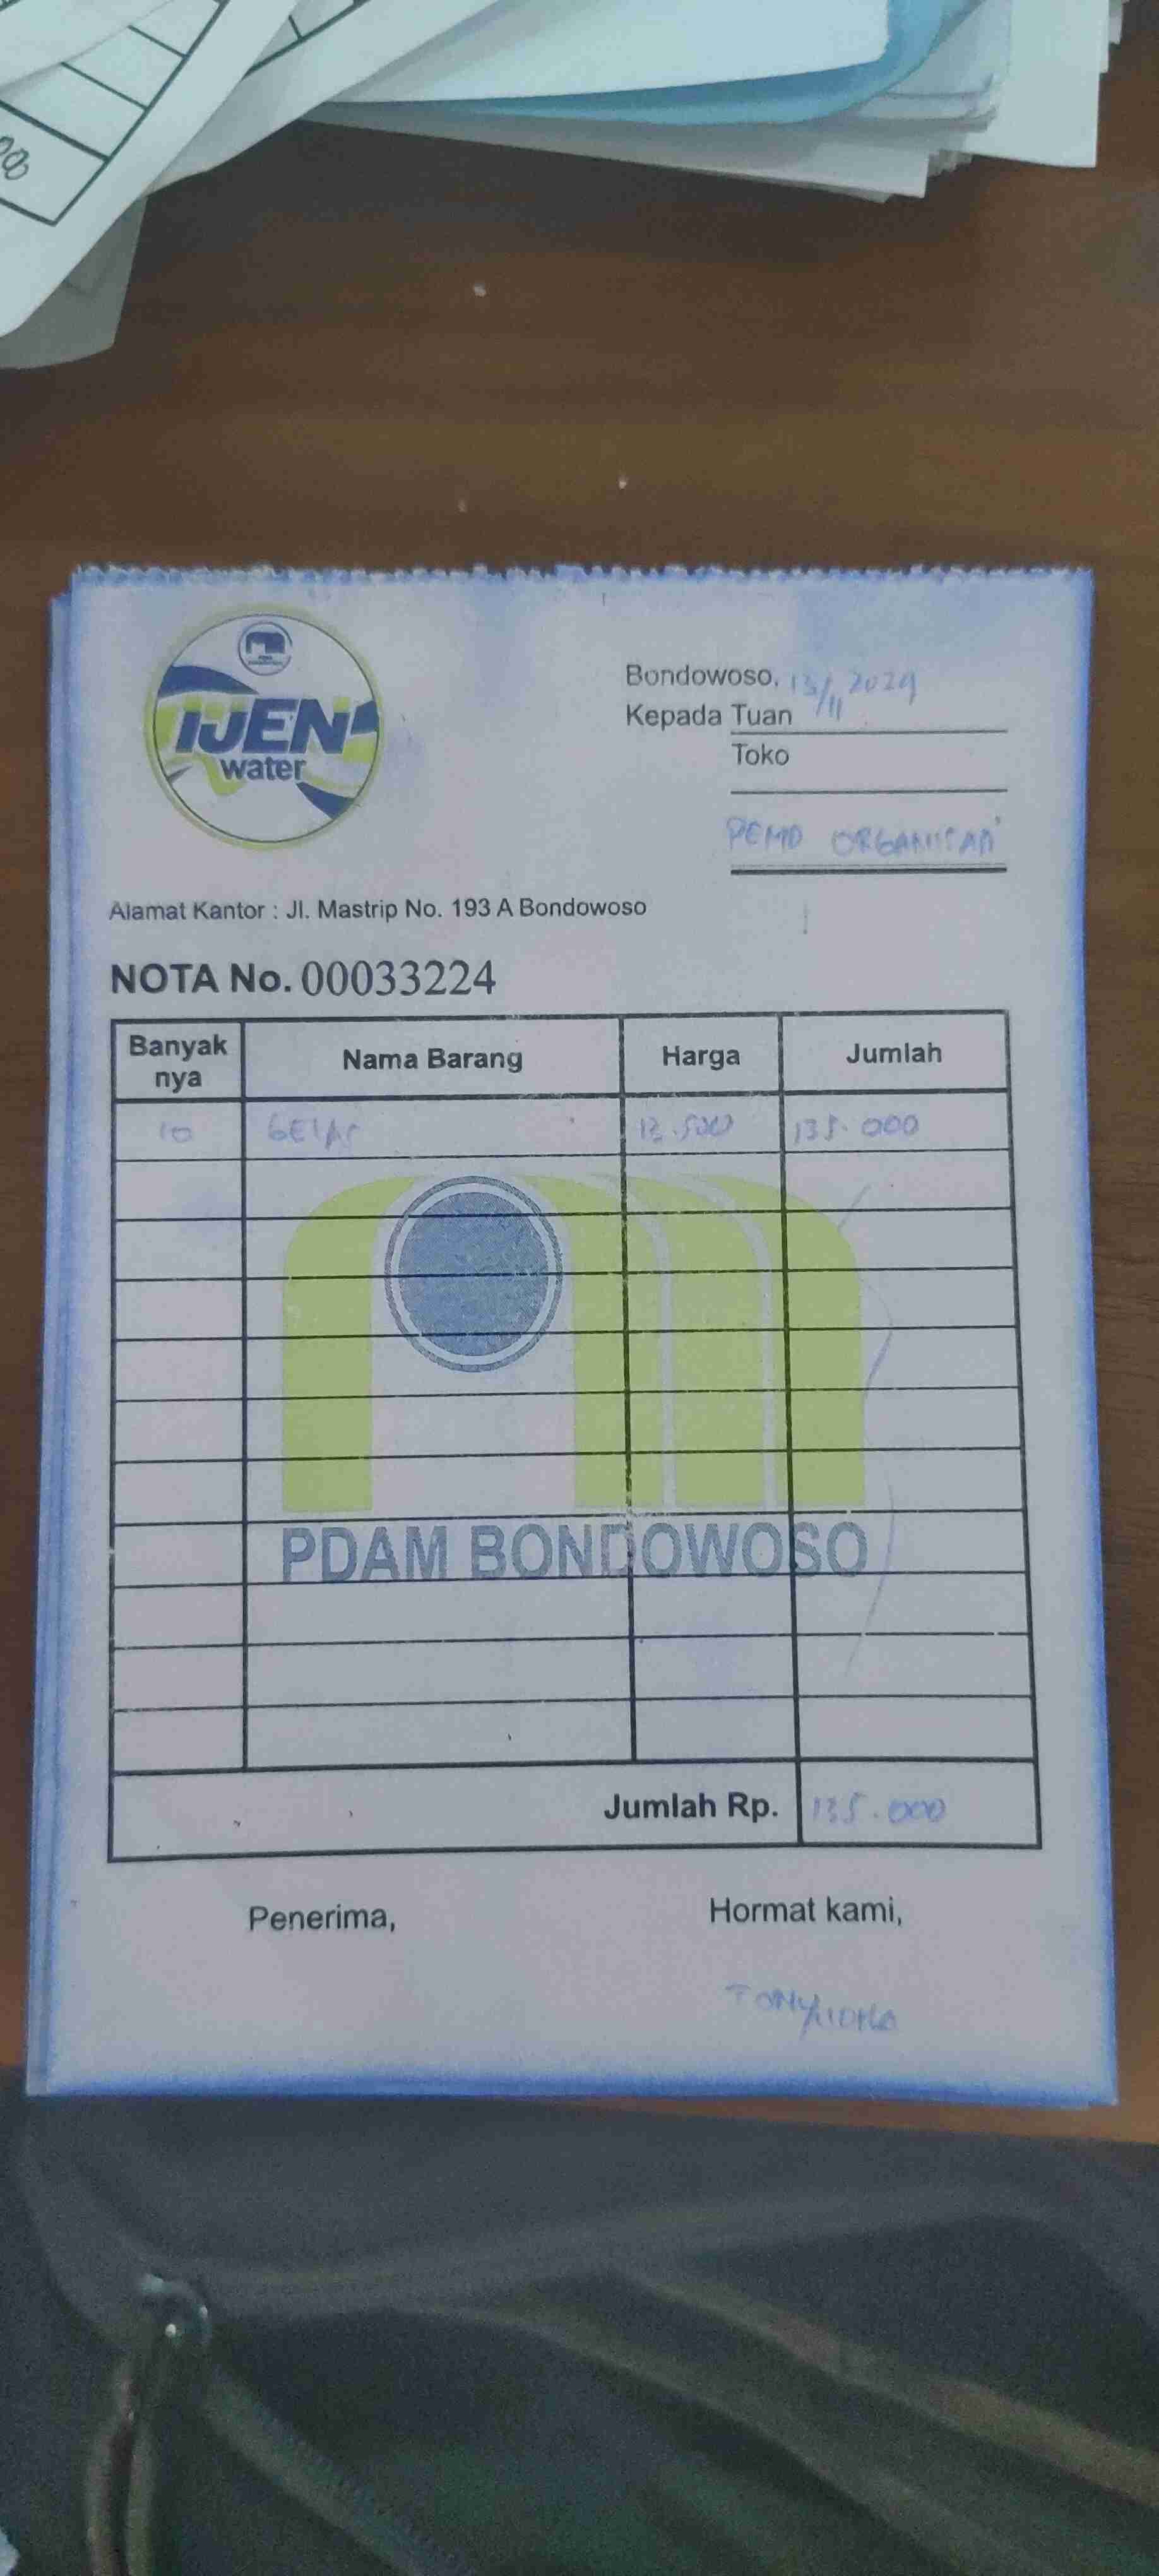 IJEN
water
Bondowoso, 13/11 2024
Kepada Tuan
Toko
PEMD ORGANISASI
Alamat Kantor : Jl. Mastrip No. 193 A Bondowoso
NOTA No. 00033224
Banyak nya Nama Barang Harga Jumlah
10 GELAS 13.500 135.000
PDAM BONDOWOSO
Jumlah Rp. 135.000
Penerima, Hormat kami,